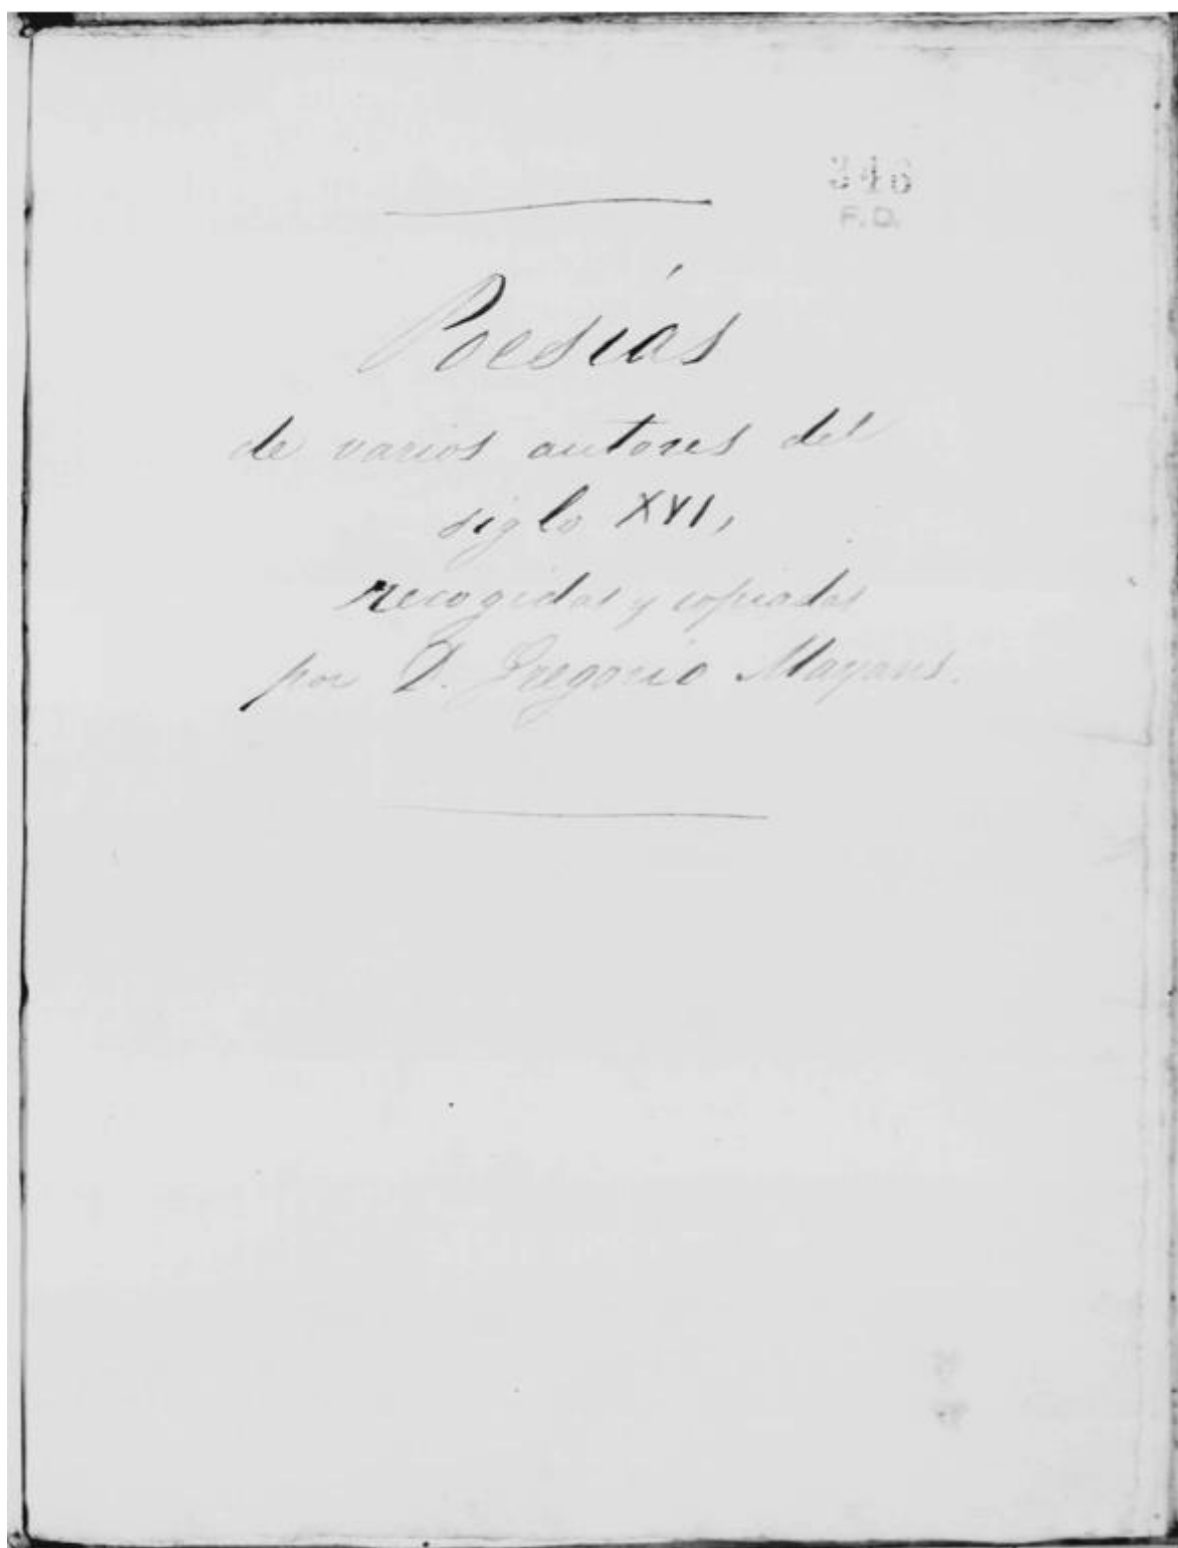 346
F.D.
Poesías
de varios autores del
siglo XVI,
recogidas y copiadas
por D. Gregorio Mayans.